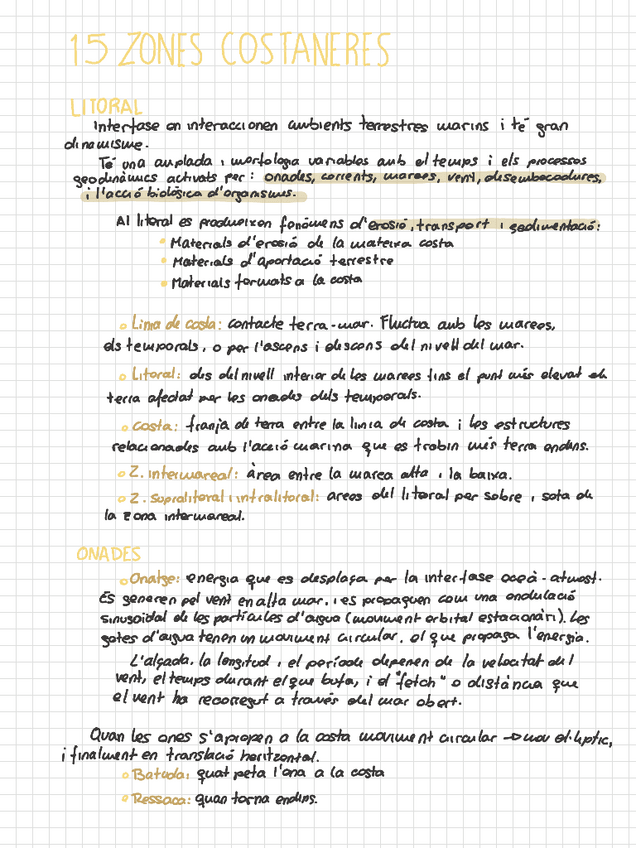 15 ZONES COSTANERES
LITORAL
Interfase on interaccionen ambients terrestres marins i té gran
dinamisme.
Té una amplada i morfologia variables amb el temps i els processos
geodinàmics activats per: onades, corrents, marees, vent, desembocadures,
i l'acció biològica d'organismes.
Al litoral es produeixen fenòmens d'erosió, transport i sedimentació:
Materials d'erosió de la mateixa costa
Materials d'aportació terrestre
Materials formats a la costa
Linia de costa: contacte terra-mar. Fluctua amb les marees,
els temporals, o per l'ascens i descens del nivell del mar.
Litoral: des del nivell inferior de les marees fins el punt més elevat de
terra afectat per les onades dels temporals.
Costa: franja de terra entre la linia de costa i les estructures
relacionades amb l'acció marina que es trobin més terra endins.
Z. intermareal: àrea entre la marea alta i la baixa.
Z. supralitoral i intralitoral: arees del litoral per sobre i sota de
la zona intermareal.
ONADES
Onatge: energia que es desplaça per la interfase oceà-atmost.
Es generen pel vent en alta mar, i es propaguen com una ondulació
sinusoidal de les partícules d'aigua (moviment orbital estacionàri). Les
gotes d'aigua tenen un moviment circular, el que propaga l'energia.
L'alçada, la longitud i el període depenen de la velocitat del
vent, el temps durant el que bufa, i el "fetch" o distància que
el vent ha recorregut a través del mar obert.
Quan les ones s'apropen a la costa moviment circular → mov el·líptic,
i finalment en translació horitzontal.
Batuda: quat peta l'ona a la costa
Ressaca: quan torna endins.